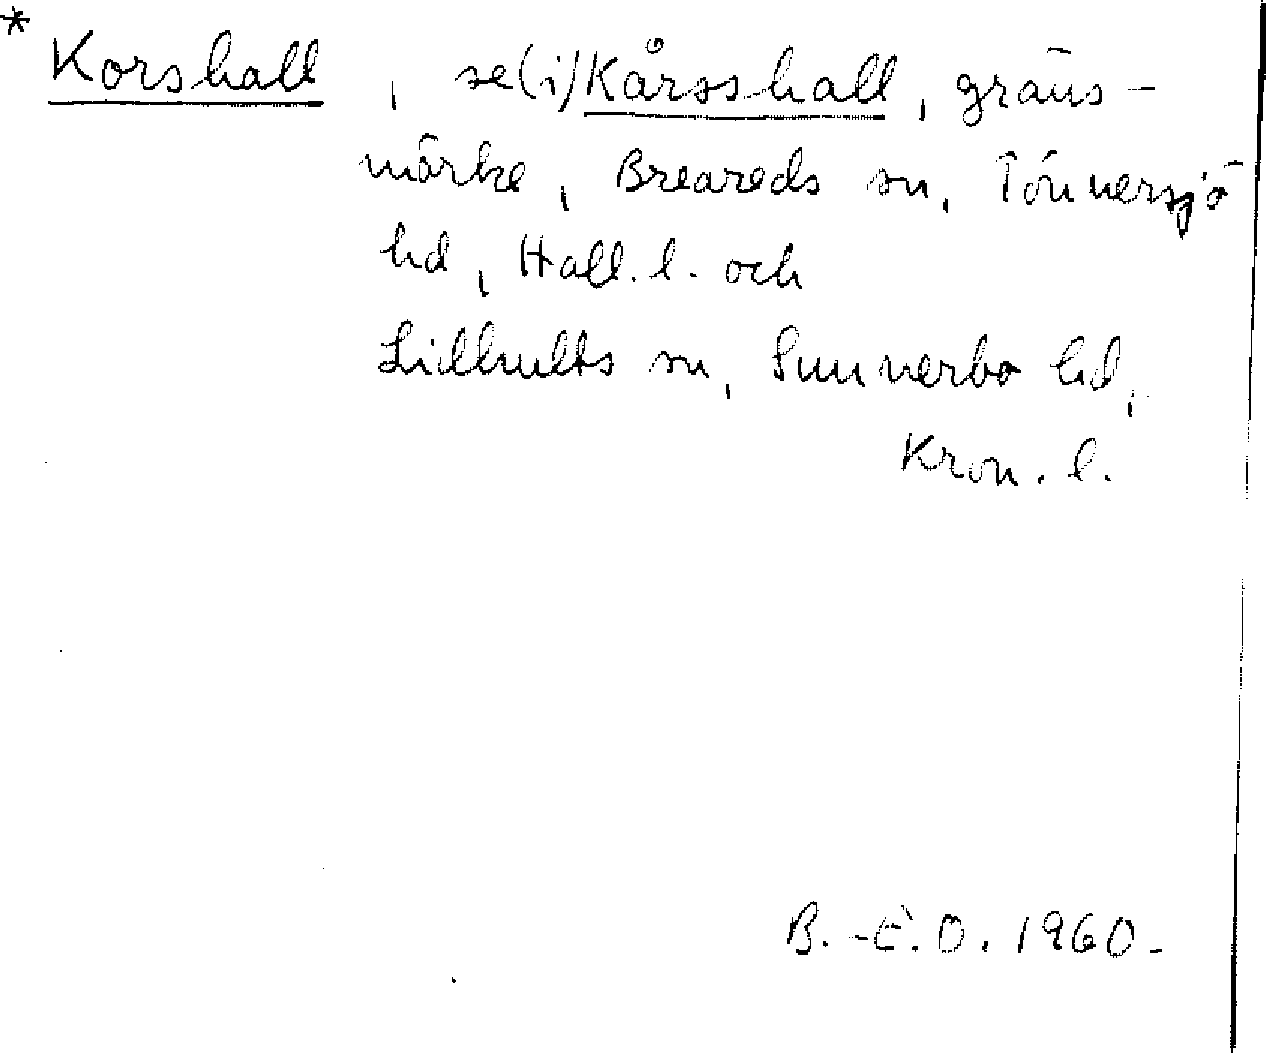 * Korshall, se(i) Kårsshall, gräns-
märke, Breareds sn, Tönnersjö
hd, Hall. l. och
Lidhults sn, Sunnerbo hd,
Kron. l.
B.-E.O. 1960.